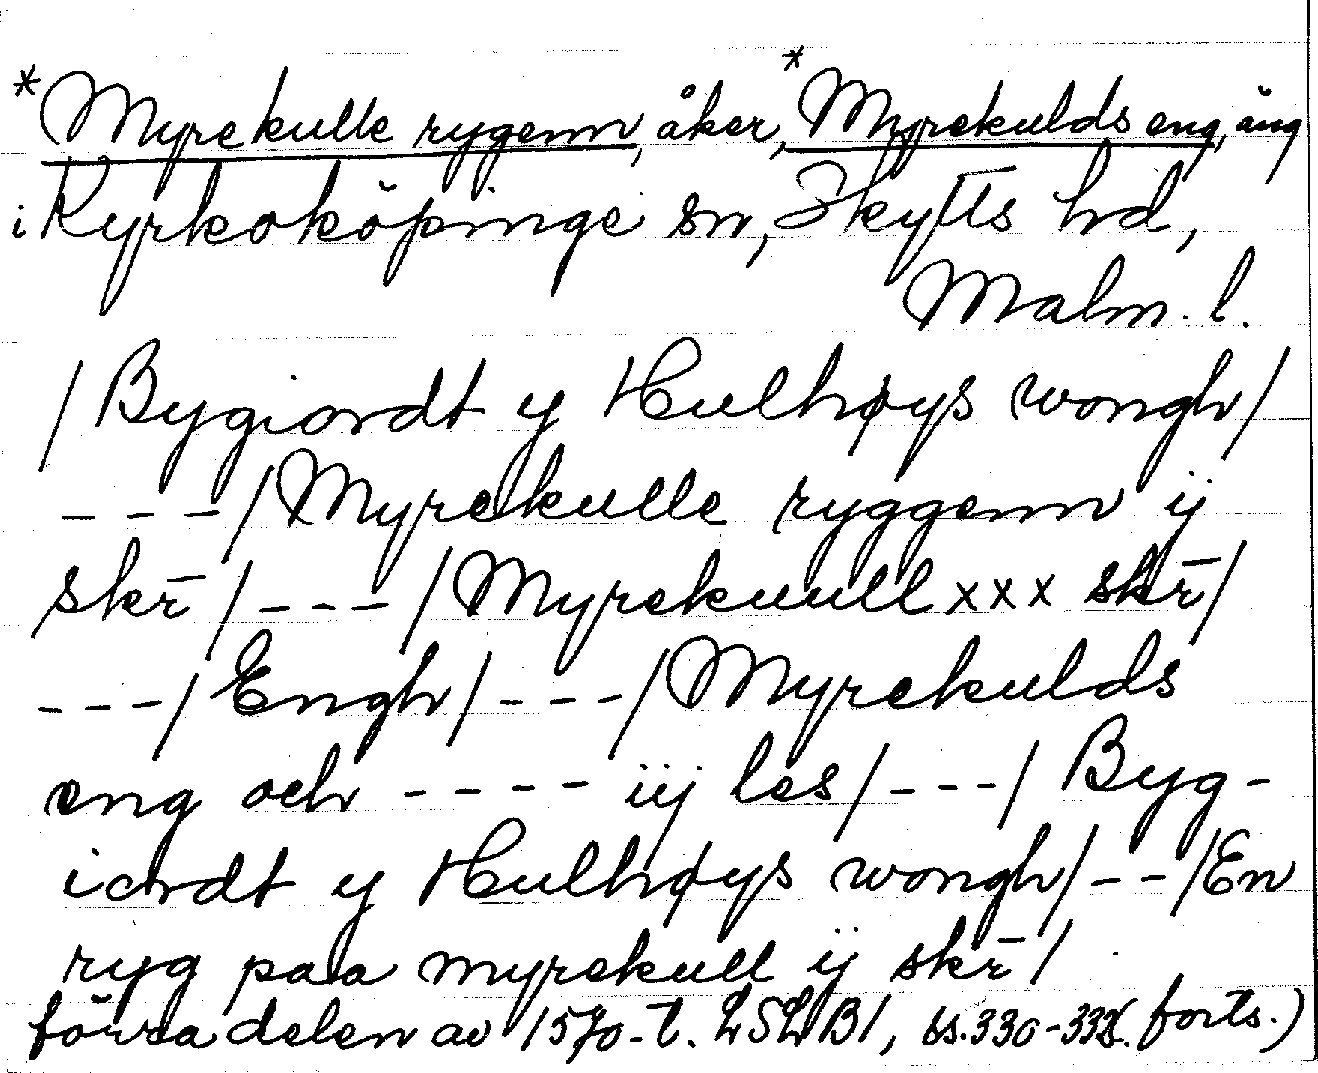 *Myrekulle rygenn, åker, *Myrekulds eng, äng
i Kyrkoköpinge sn, Skytts hd,
Malm. l.
/Bygiordt y Hulhøys wongh/
---/Myrekulle ryggenn ij
skr̄/---/Myrekuull xxx skr̄/
---/Engh/---/Myrekulds
eng och ---- iij les/---/Byg-
iordt y Hulhøys wongh/--/En
ryg paa myrekull ij skr̄/
förra delen av 1570-t. LSLB1, ss. 330- forts.)